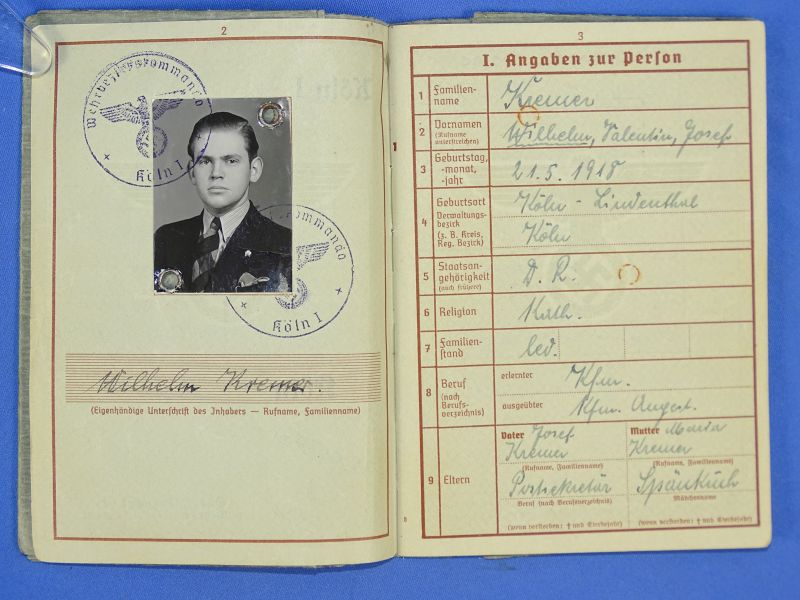 2
Wehrbezirkskommando
Köln I
kommando
Köln I
Wilhelm Kremer.
(Eigenhändige Unterschrift des Inhabers — Rufname, Familienname)
3
I. Angaben zur Person
1 Familien-
name
Kremer
2 Vornamen
(Rufname
unterstreichen)
Wilhelm, Valentin, Josef
3 Geburtstag,
-monat,
-jahr
21. 5. 1918
4 Geburtsort
Verwaltungs-
bezirk
(z. B. Kreis,
Reg. Bezirk)
Köln - Lindenthal
Köln
5 Staatsan-
gehörigkeit
(auch frühere)
D. R.
6 Religion
Kath.
7 Familien-
stand
led.
8 Beruf
(nach
Berufs-
verzeichnis)
erlernter Kfm.
ausgeübter Kfm. Angest.
9 Eltern
Vater Josef
Kremer
(Rufname, Familienname)
Postsekretär
Beruf (nach Berufsverzeichnis)
(wenn verstorben: † und Sterbejahr)
Mutter Maria
Kremer
(Rufname, Familienname)
Spänkuch
Mädchenname
(wenn verstorben: † und Sterbejahr)